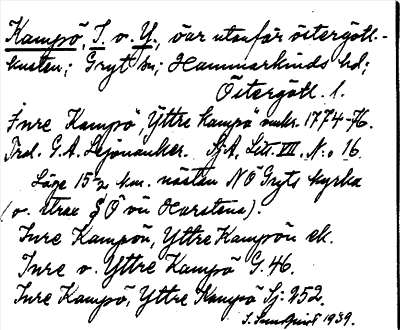 Kampö, I. o. Y., öar utanför östergötl.-
kusten; Gryt sn; Hammarkinds hd;
Östergötl. l.
Inre Kampö, Yttre Kampö omkr. 1774-76.
Trol. G. A. Lejonanker. SjA, Litt. VII, N:o 16.
Läge 15½ km. nästan NO Gryts kyrka
(o. strax SO om Harstena).
Inre Kampön, Yttre Kampön ek.
Inre o. Yttre Kampö G. 46.
Inre Kampö, Yttre Kampö Sj: 252.
1939.